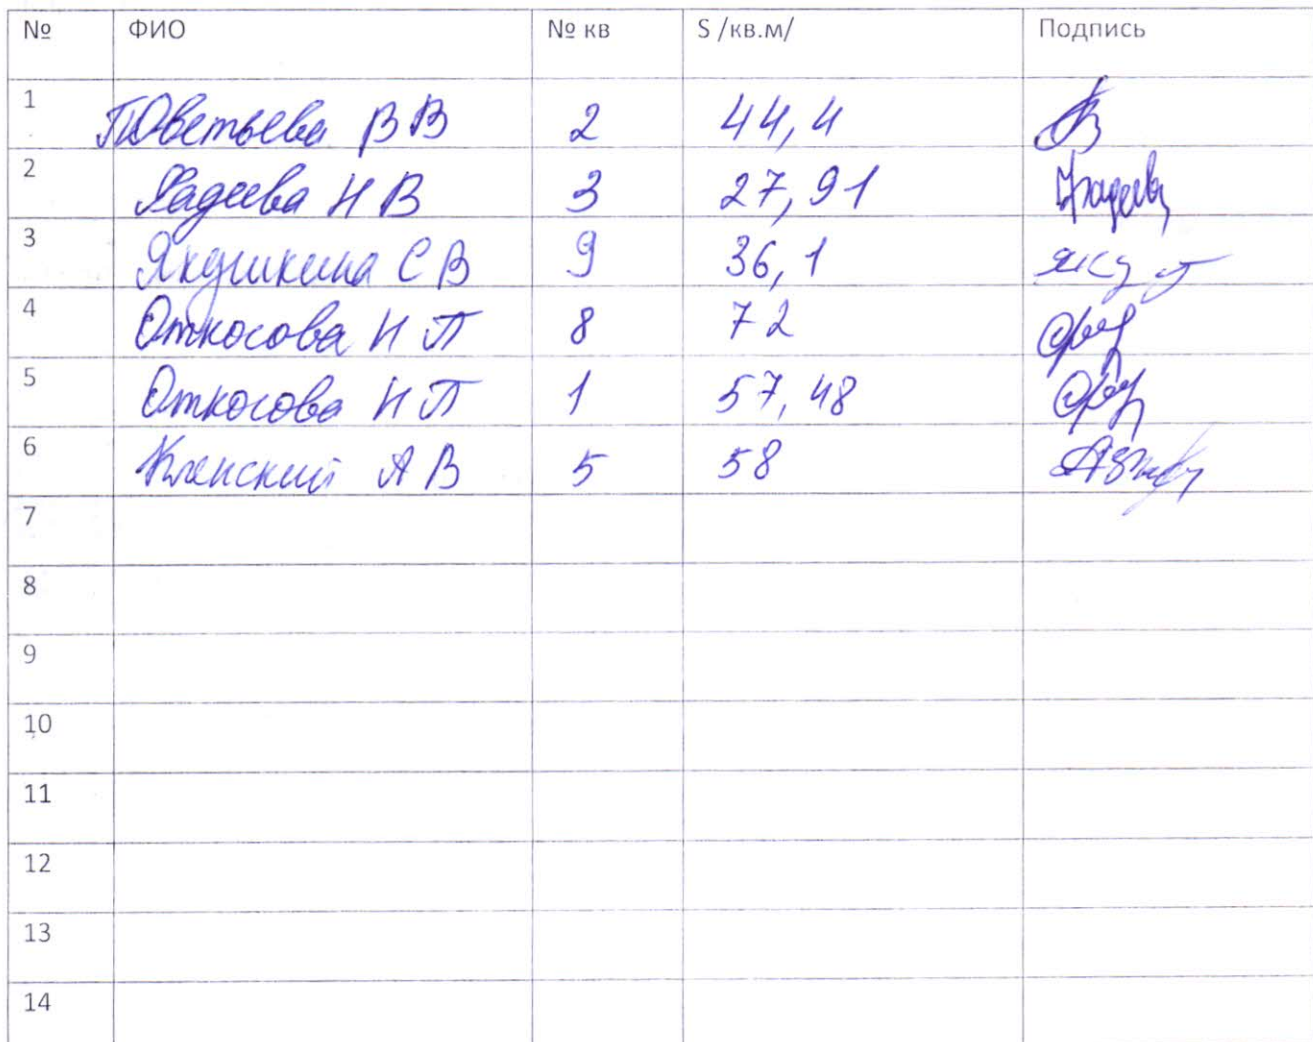 № ФИО № кв S /кв.м/ Подпись
1 В В 2 44,4
2 Фадеева Н В 3 27,91 Фадеева
3 Якушкина С В 9 36,1
4 Откосова Н П 8 72
5 Откосова Н П 1 57,48
6 Кленский А В 5 58
7
8
9
10
11
12
13
14